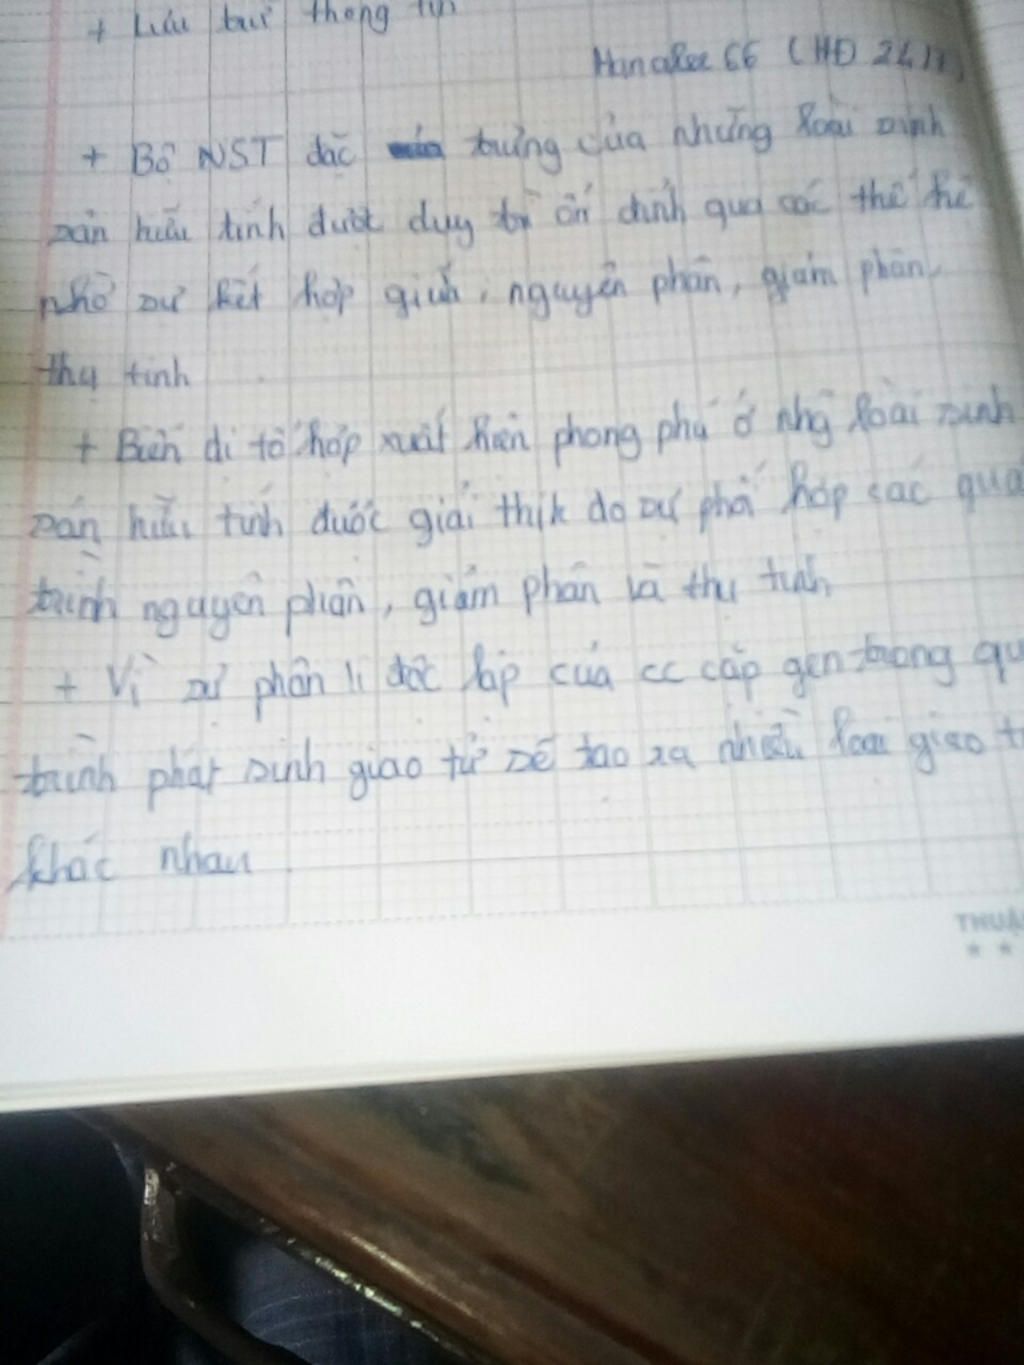 + Lưu trữ thông tin
Hanalee 66 (HĐ 241)
+ Bộ NST đặc trưng của những loài sinh
sản hữu tính được duy trì ổn định qua các thế hệ
nhờ sự kết hợp giữa, nguyên phân, giảm phân,
thụ tinh
+ Biến dị tổ hợp xuất hiện phong phú ở nhg loài sinh
sản hữu tính được giải thik do sự phối hợp các quá
trình nguyên phân, giảm phân và thụ tinh
+ Vì sự phân li độc lập của cc cặp gen trong qu
trình phát sinh giao tử sẽ tạo ra nhiều loại giao t
khác nhau
THUẬ